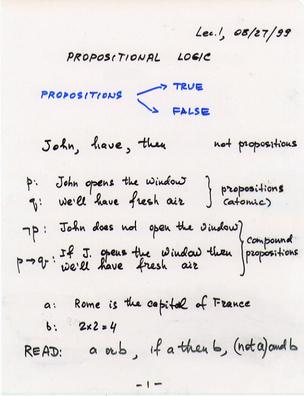 Lec.1, 08/27/99
PROPOSITIONAL LOGIC
PROPOSITIONS → TRUE
→ FALSE
John, have, then not propositions
p: John opens the window
q: we'll have fresh air } propositions (atomic)
¬p: John does not open the window
p→q: If J. opens the window then we'll have fresh air } compound propositions
a: Rome is the capital of France
b: 2×2=4
READ: a or b, if a then b, (not a) and b
-1-